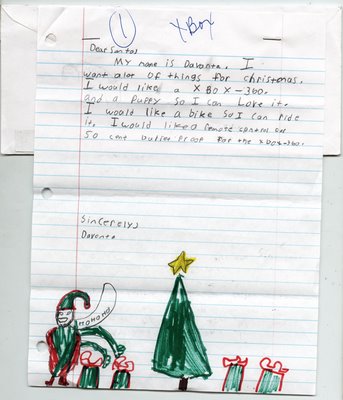 1
XBox
Dear Santa,
My name is Davonta. I
want alot of things for christmas.
I would like a XBOX-360.
and a puppy so I can Love it.
I would like a bike so I can ride
it. I would like a remote control car
50 cent bullet proof for the XBOX-360.
Sincerely,
Davonta
HOHOHO